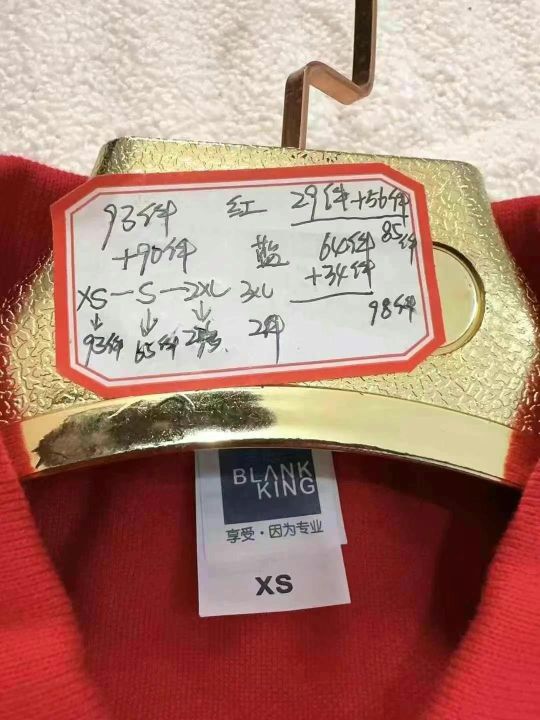 93件 红 29件+56件
85件
+90件 蓝 64件
+34件
98件
XS-S-2XL 3XL
93件 65件 2件
BLANK
KING
享受·因为专业
XS